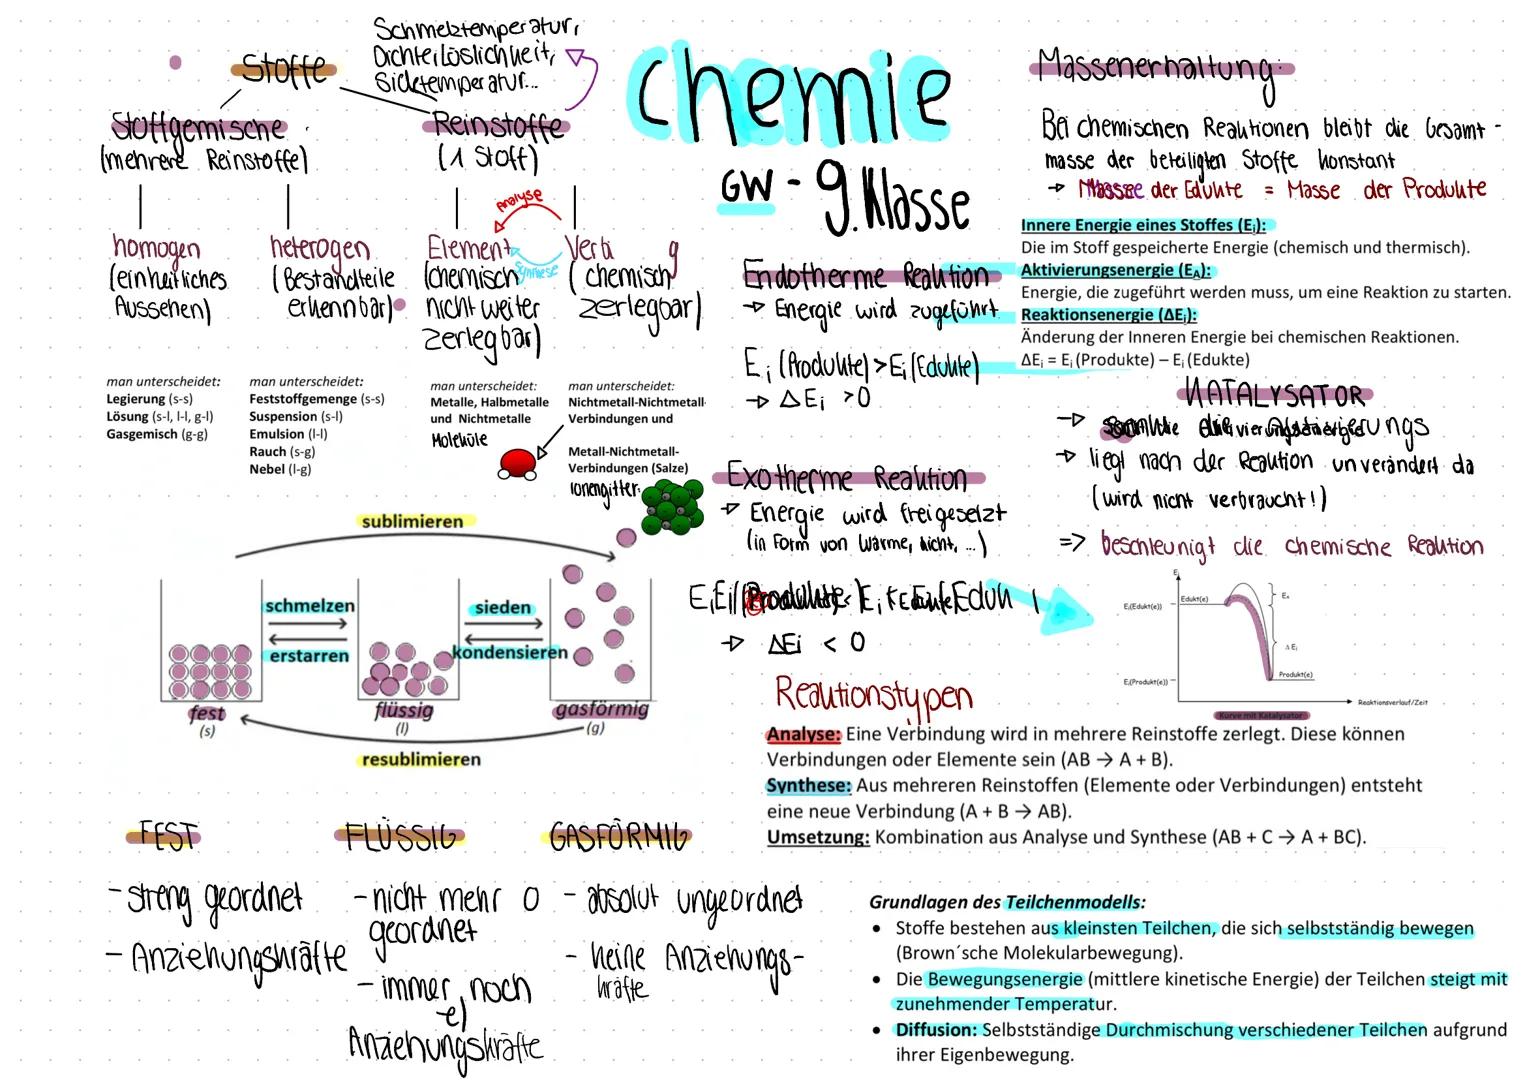 Stoffe
Schmelztemperatur,
Dichte, Löslichkeit,
Siedetemperatur...
Stoffgemische
(mehrere Reinstoffe)
Reinstoffe
(1 Stoff)
Analyse
Synthese
homogen
(einheitliches
Aussehen)
heterogen
(Bestandteile
erkennbar)
Element
(chemisch
nicht weiter
zerlegbar)
Verbi g
(chemisch
zerlegbar)
man unterscheidet:
Legierung (s-s)
Lösung (s-l, l-l, g-l)
Gasgemisch (g-g)
man unterscheidet:
Feststoffgemenge (s-s)
Suspension (s-l)
Emulsion (l-l)
Rauch (s-g)
Nebel (l-g)
man unterscheidet:
Metalle, Halbmetalle
und Nichtmetalle
Moleküle
man unterscheidet:
Nichtmetall-Nichtmetall-
Verbindungen und
Metall-Nichtmetall-
Verbindungen (Salze)
Ionengitter
sublimieren
schmelzen
erstarren
sieden
kondensieren
fest
(s)
flüssig
(l)
gasförmig
(g)
resublimieren
FEST
- streng geordnet
- Anziehungskräfte
FLÜSSIG
- nicht mehr
geordnet
- immer noch
Anziehungskräfte
GASFÖRMIG
- absolut ungeordnet
- keine Anziehungs-
kräfte
Chemie
GW - 9. Klasse
Endotherme Reaktion
→ Energie wird zugeführt
Ei (Produkte) > Ei (Edukte)
→ ΔEi > 0
Exotherme Reaktion
→ Energie wird freigesetzt
(in Form von Wärme, Licht, ...)
→ ΔEi < 0
Massenerhaltung
Bei chemischen Reaktionen bleibt die Gesamt-
masse der beteiligten Stoffe konstant
→ Masse der Edukte = Masse der Produkte
Innere Energie eines Stoffes (Ei):
Die im Stoff gespeicherte Energie (chemisch und thermisch).
Aktivierungsenergie (EA):
Energie, die zugeführt werden muss, um eine Reaktion zu starten.
Reaktionsenergie (ΔEi):
Änderung der Inneren Energie bei chemischen Reaktionen.
ΔEi = Ei (Produkte) – Ei (Edukte)
KATALYSATOR
→ liegt nach der Reaktion unverändert da
(wird nicht verbraucht!)
=> beschleunigt die chemische Reaktion
Ei
Ei(Edukt(e))
Edukt(e)
EA
Δ Ei
Ei(Produkt(e))
Produkt(e)
Reaktionsverlauf/Zeit
Kurve mit Katalysator
Reaktionstypen
Analyse: Eine Verbindung wird in mehrere Reinstoffe zerlegt. Diese können
Verbindungen oder Elemente sein (AB → A + B).
Synthese: Aus mehreren Reinstoffen (Elemente oder Verbindungen) entsteht
eine neue Verbindung (A + B → AB).
Umsetzung: Kombination aus Analyse und Synthese (AB + C → A + BC).
Grundlagen des Teilchenmodells:
• Stoffe bestehen aus kleinsten Teilchen, die sich selbstständig bewegen
(Brown´sche Molekularbewegung).
• Die Bewegungsenergie (mittlere kinetische Energie) der Teilchen steigt mit
zunehmender Temperatur.
• Diffusion: Selbstständige Durchmischung verschiedener Teilchen aufgrund
ihrer Eigenbewegung.